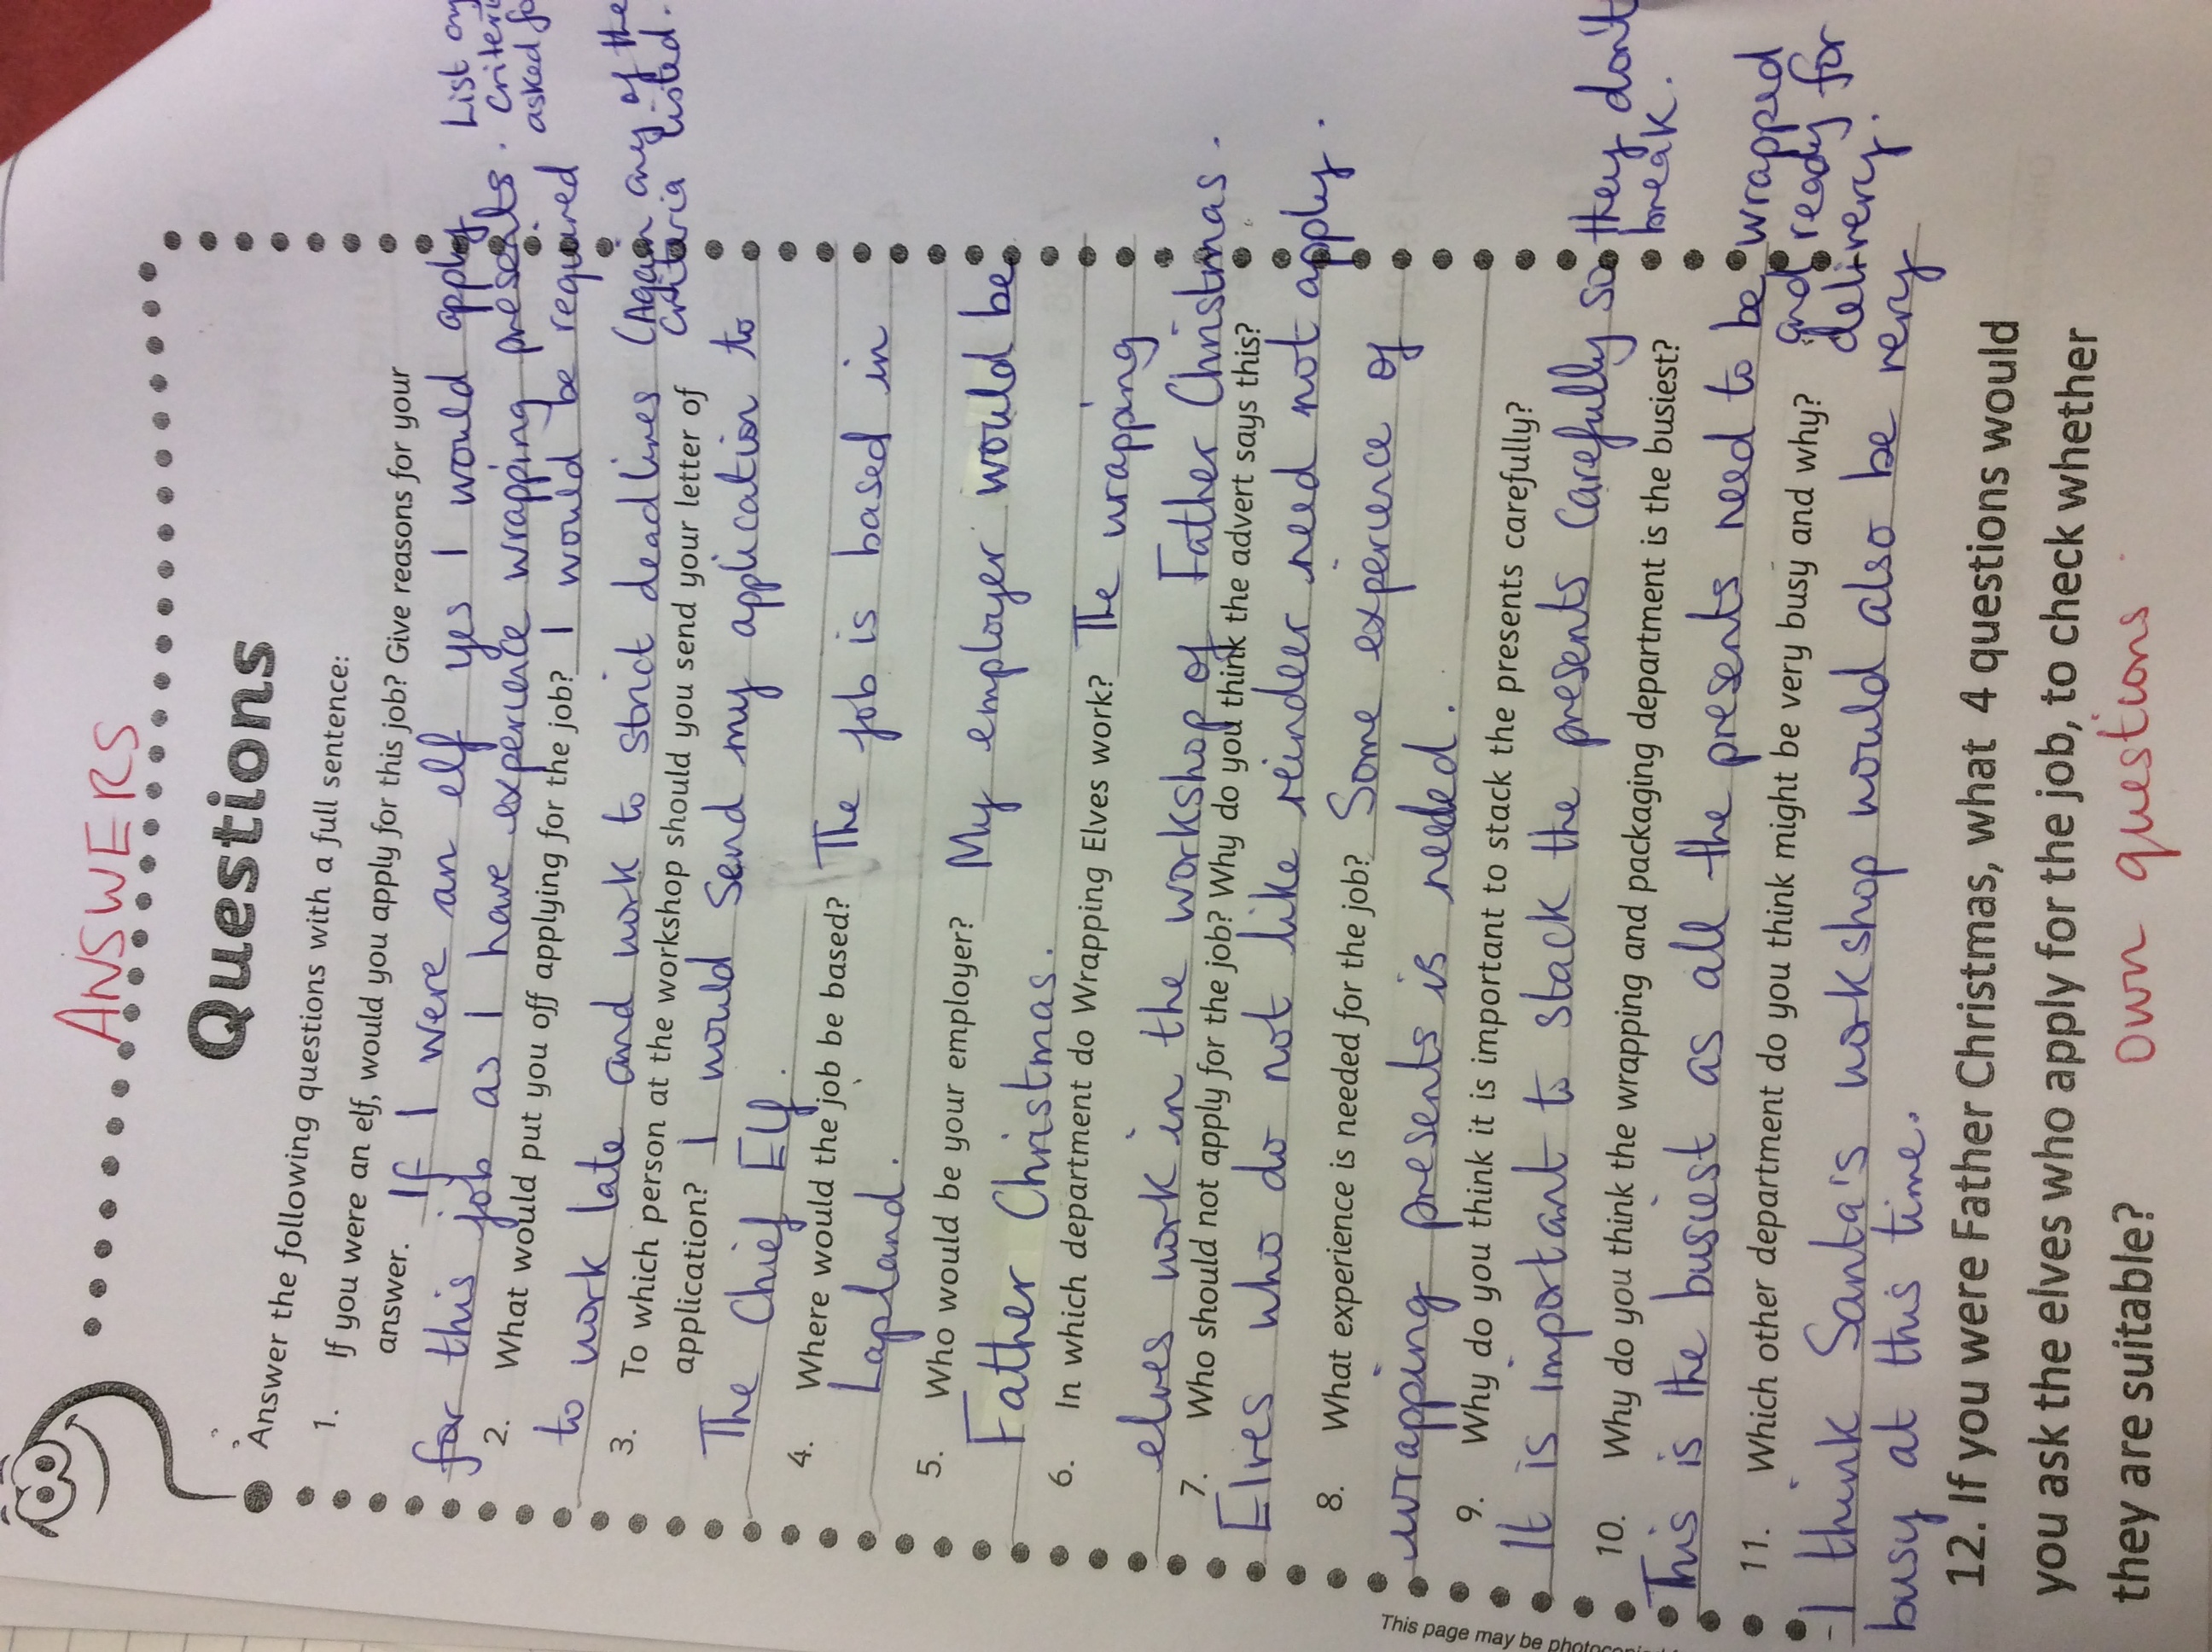 ANSWERS
Questions
Answer the following questions with a full sentence:
1. If you were an elf, would you apply for this job? Give reasons for your
answer. If I were an elf yes I would apply
for this job as I have experience wrapping presents. List any
criteria
asked for
2. What would put you off applying for the job? I would be required
to work late and work to strict deadlines (Again any of the
criteria listed.
3. To which person at the workshop should you send your letter of
application? I would send my application to
The Chief Elf.
4. Where would the job be based? The job is based in
Lapland.
5. Who would be your employer? My employer would be
Father Christmas.
6. In which department do Wrapping Elves work? The wrapping
elves work in the workshop of Father Christmas.
7. Who should not apply for the job? Why do you think the advert says this?
Elves who do not like reindeer need not apply.
8. What experience is needed for the job? Some experience of
wrapping presents is needed.
9. Why do you think it is important to stack the presents carefully?
It is important to stack the presents carefully so they don't
break.
10. Why do you think the wrapping and packaging department is the busiest?
This is the busiest as all the presents need to be wrapped
and ready for
delivery.
11. Which other department do you think might be very busy and why?
I think Santa's workshop would also be very
busy at this time.
12. If you were Father Christmas, what 4 questions would
you ask the elves who apply for the job, to check whether
they are suitable? Own questions.
This page may be